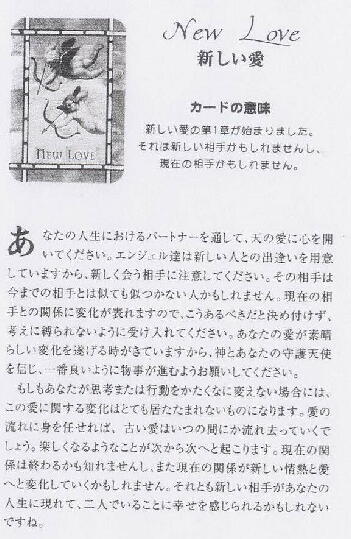 New Love
新しい愛
NEW LOVE
カードの意味
新しい愛の第1章が始まりました。
それは新しい相手かもしれませんし、
現在の相手かもしれません。
あなたの人生におけるパートナーを通して、天の愛に心を開
いてください。エンジェル達は新しい人との出逢いを用意
していますから、新しく会う相手に注意してください。その相手は
今までの相手とは似ても似つかない人かもしれません。現在の相
手との関係に変化が表れますので、こうあるべきだと決め付けず、
考えに縛られないように受け入れてください。あなたの愛が素晴
らしい変化を遂げる時がきていますから、神とあなたの守護天使
を信じ、一番良いように物事が進むようお願いしてください。
もしもあなたが思考または行動をかたくなに変えない場合には、
この愛に関する変化はとても居たたまれないものになります。愛の
流れに身を任せれば、古い愛はいつの間にか流れ去っていくで
しょう。楽しくなるようなことが次から次へと起こります。現在の関
係は終わるかも知れませんし、また現在の関係が新しい情熱と愛
へと変化していくかもしれません。それとも新しい相手があなたの
人生に現れて、二人でいることに幸せを感じられるかもしれない
ですね。